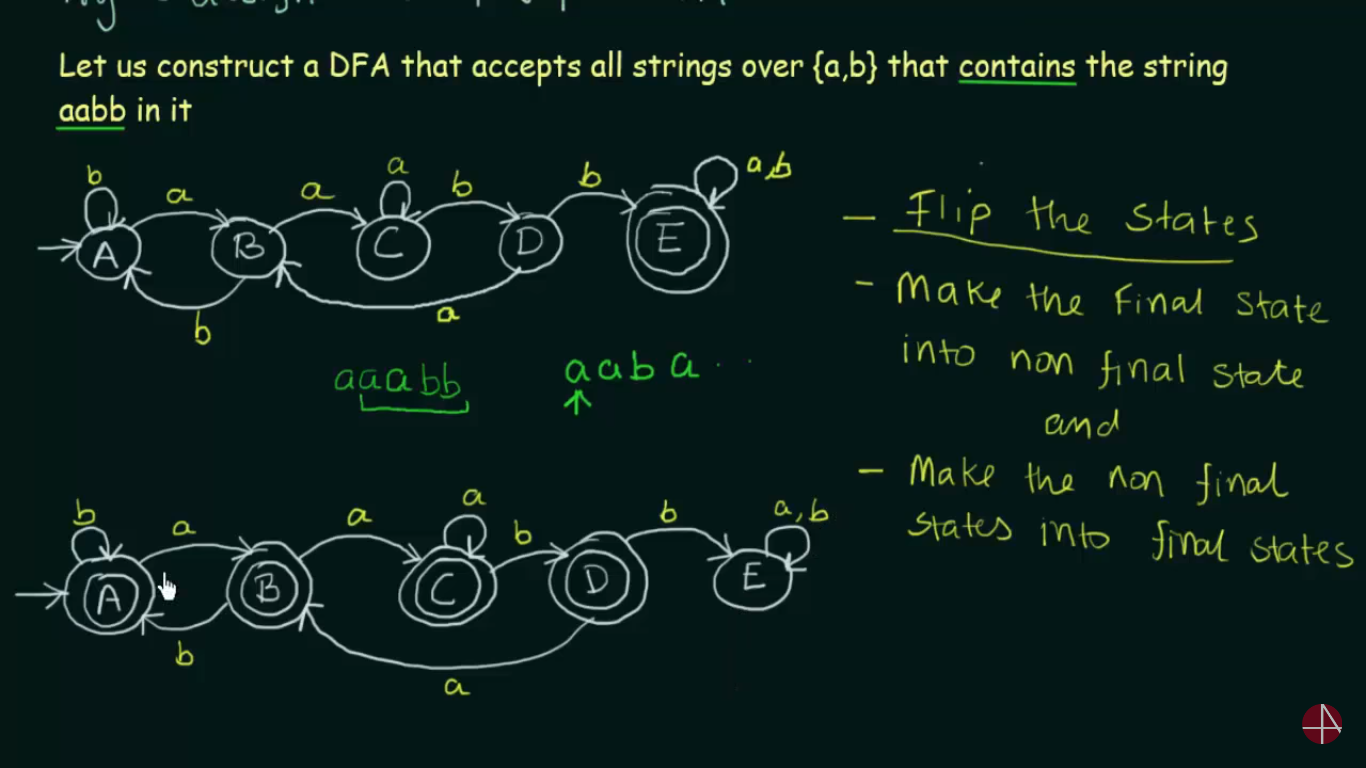 Let us construct a DFA that accepts all strings over {a,b} that contains the string
aabb in it
b a a a b b a,b
A B C D E
b a
aaabb aaba . .
b a a a b b a,b
A B C D E
b a
– Flip the States
– Make the Final State
into non final state
and
– Make the non final
states into final states